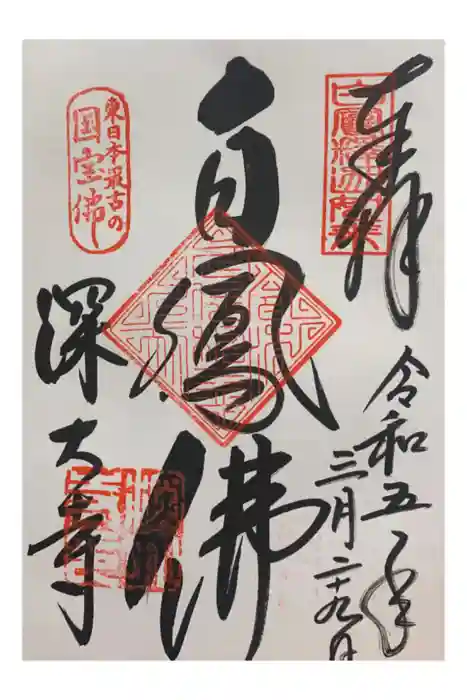 奉拝
令和五年
三月二十九日
白鳳佛
東日本最古の
国宝佛
深大寺